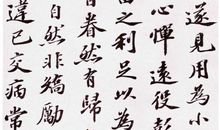 遂見用為小
心憚遠役彭
田之利足以為
日眷然有歸
自然非矯勵
違己交病常